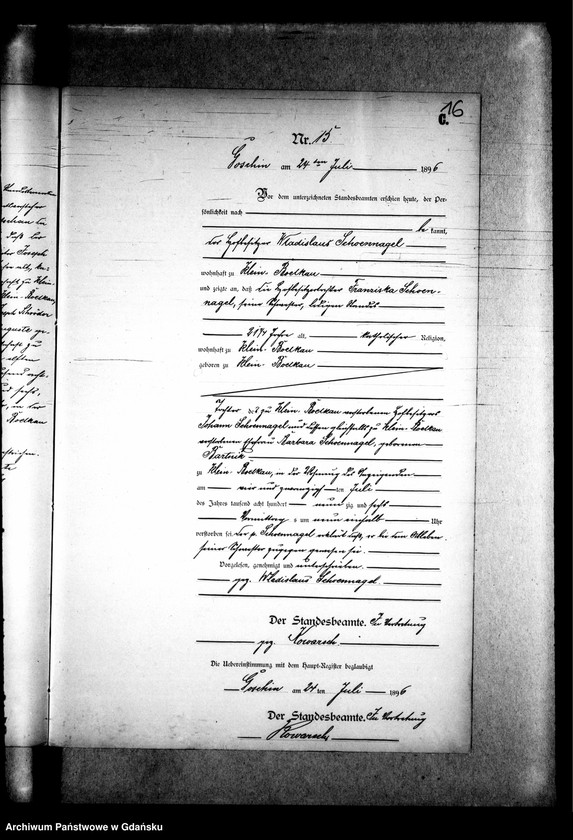 16
C.
Nr. 15
Goschin am 24 ten Juli 1896
Vor dem unterzeichneten Standesbeamten erschien heute, der Per-
sönlichkeit nach
be kannt,
der Hofbesitzer Wladislaus Schoennagel
wohnhaft zu Klein-Boelkau
und zeigte an, daß die Hofbesitzertochter Franziska Schoen-
nagel, seine Schwester, ledigen Standes
21¾ Jahre alt, katholischer Religion,
wohnhaft zu Klein-Boelkau
geboren zu Klein-Boelkau
Tochter des zu Klein Boelkau verstorbenen Hofbesitzers
Johann Schoennagel und dessen gleichfalls zu Klein-Boelkau
verstorbenen Ehefrau Barbara Schoennagel, geborenen
Bartnik
zu Klein-Boelkau, in der Wohnung des Anzeigenden
am vier und zwanzigsten Juli
des Jahres tausend acht hundert neun zig und sechs
Vormittags um neun einhalb Uhr
verstorben sei. Der p. Schoennagel erklärt, daß er bei dem Ableben
seiner Schwester zugegen gewesen sei.
Vorgelesen, genehmigt und unterschrieben
gez. Wladislaus Schoennagel
Der Standesbeamte. In Vertretung
gez. Kowarsch.
Die Uebereinstimmung mit dem Haupt-Register beglaubigt
Goschin am 24 ten Juli 1896
Der Standesbeamte. In Vertretung
Kowarsch
Archiwum Państwowe w Gdańsku